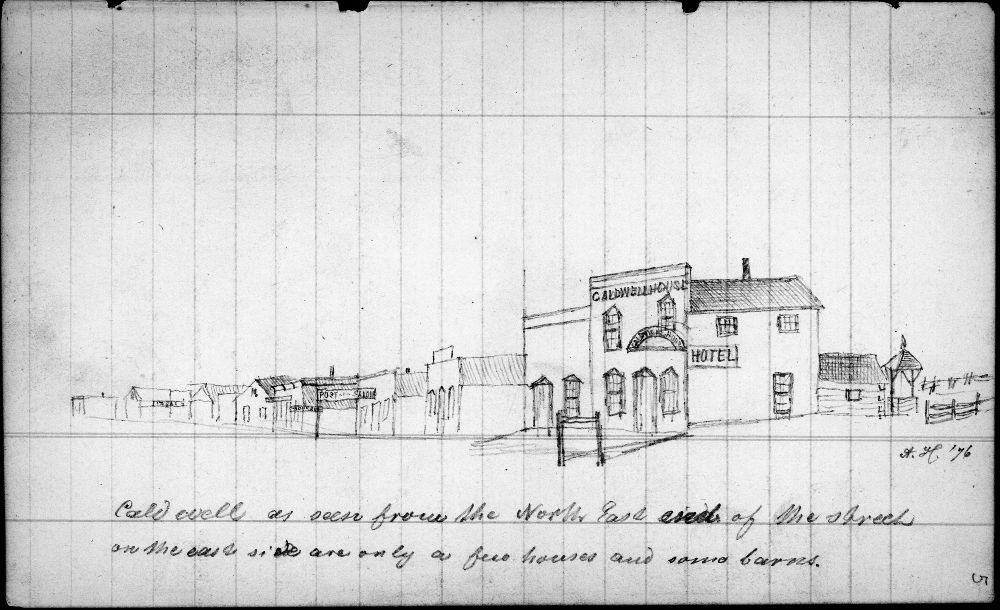 CALDWELL HOUSE
HOTEL
POST
A. H. '76
Caldwell as seen from the North East end of the street
on the east side are only a few houses and some barns.
5